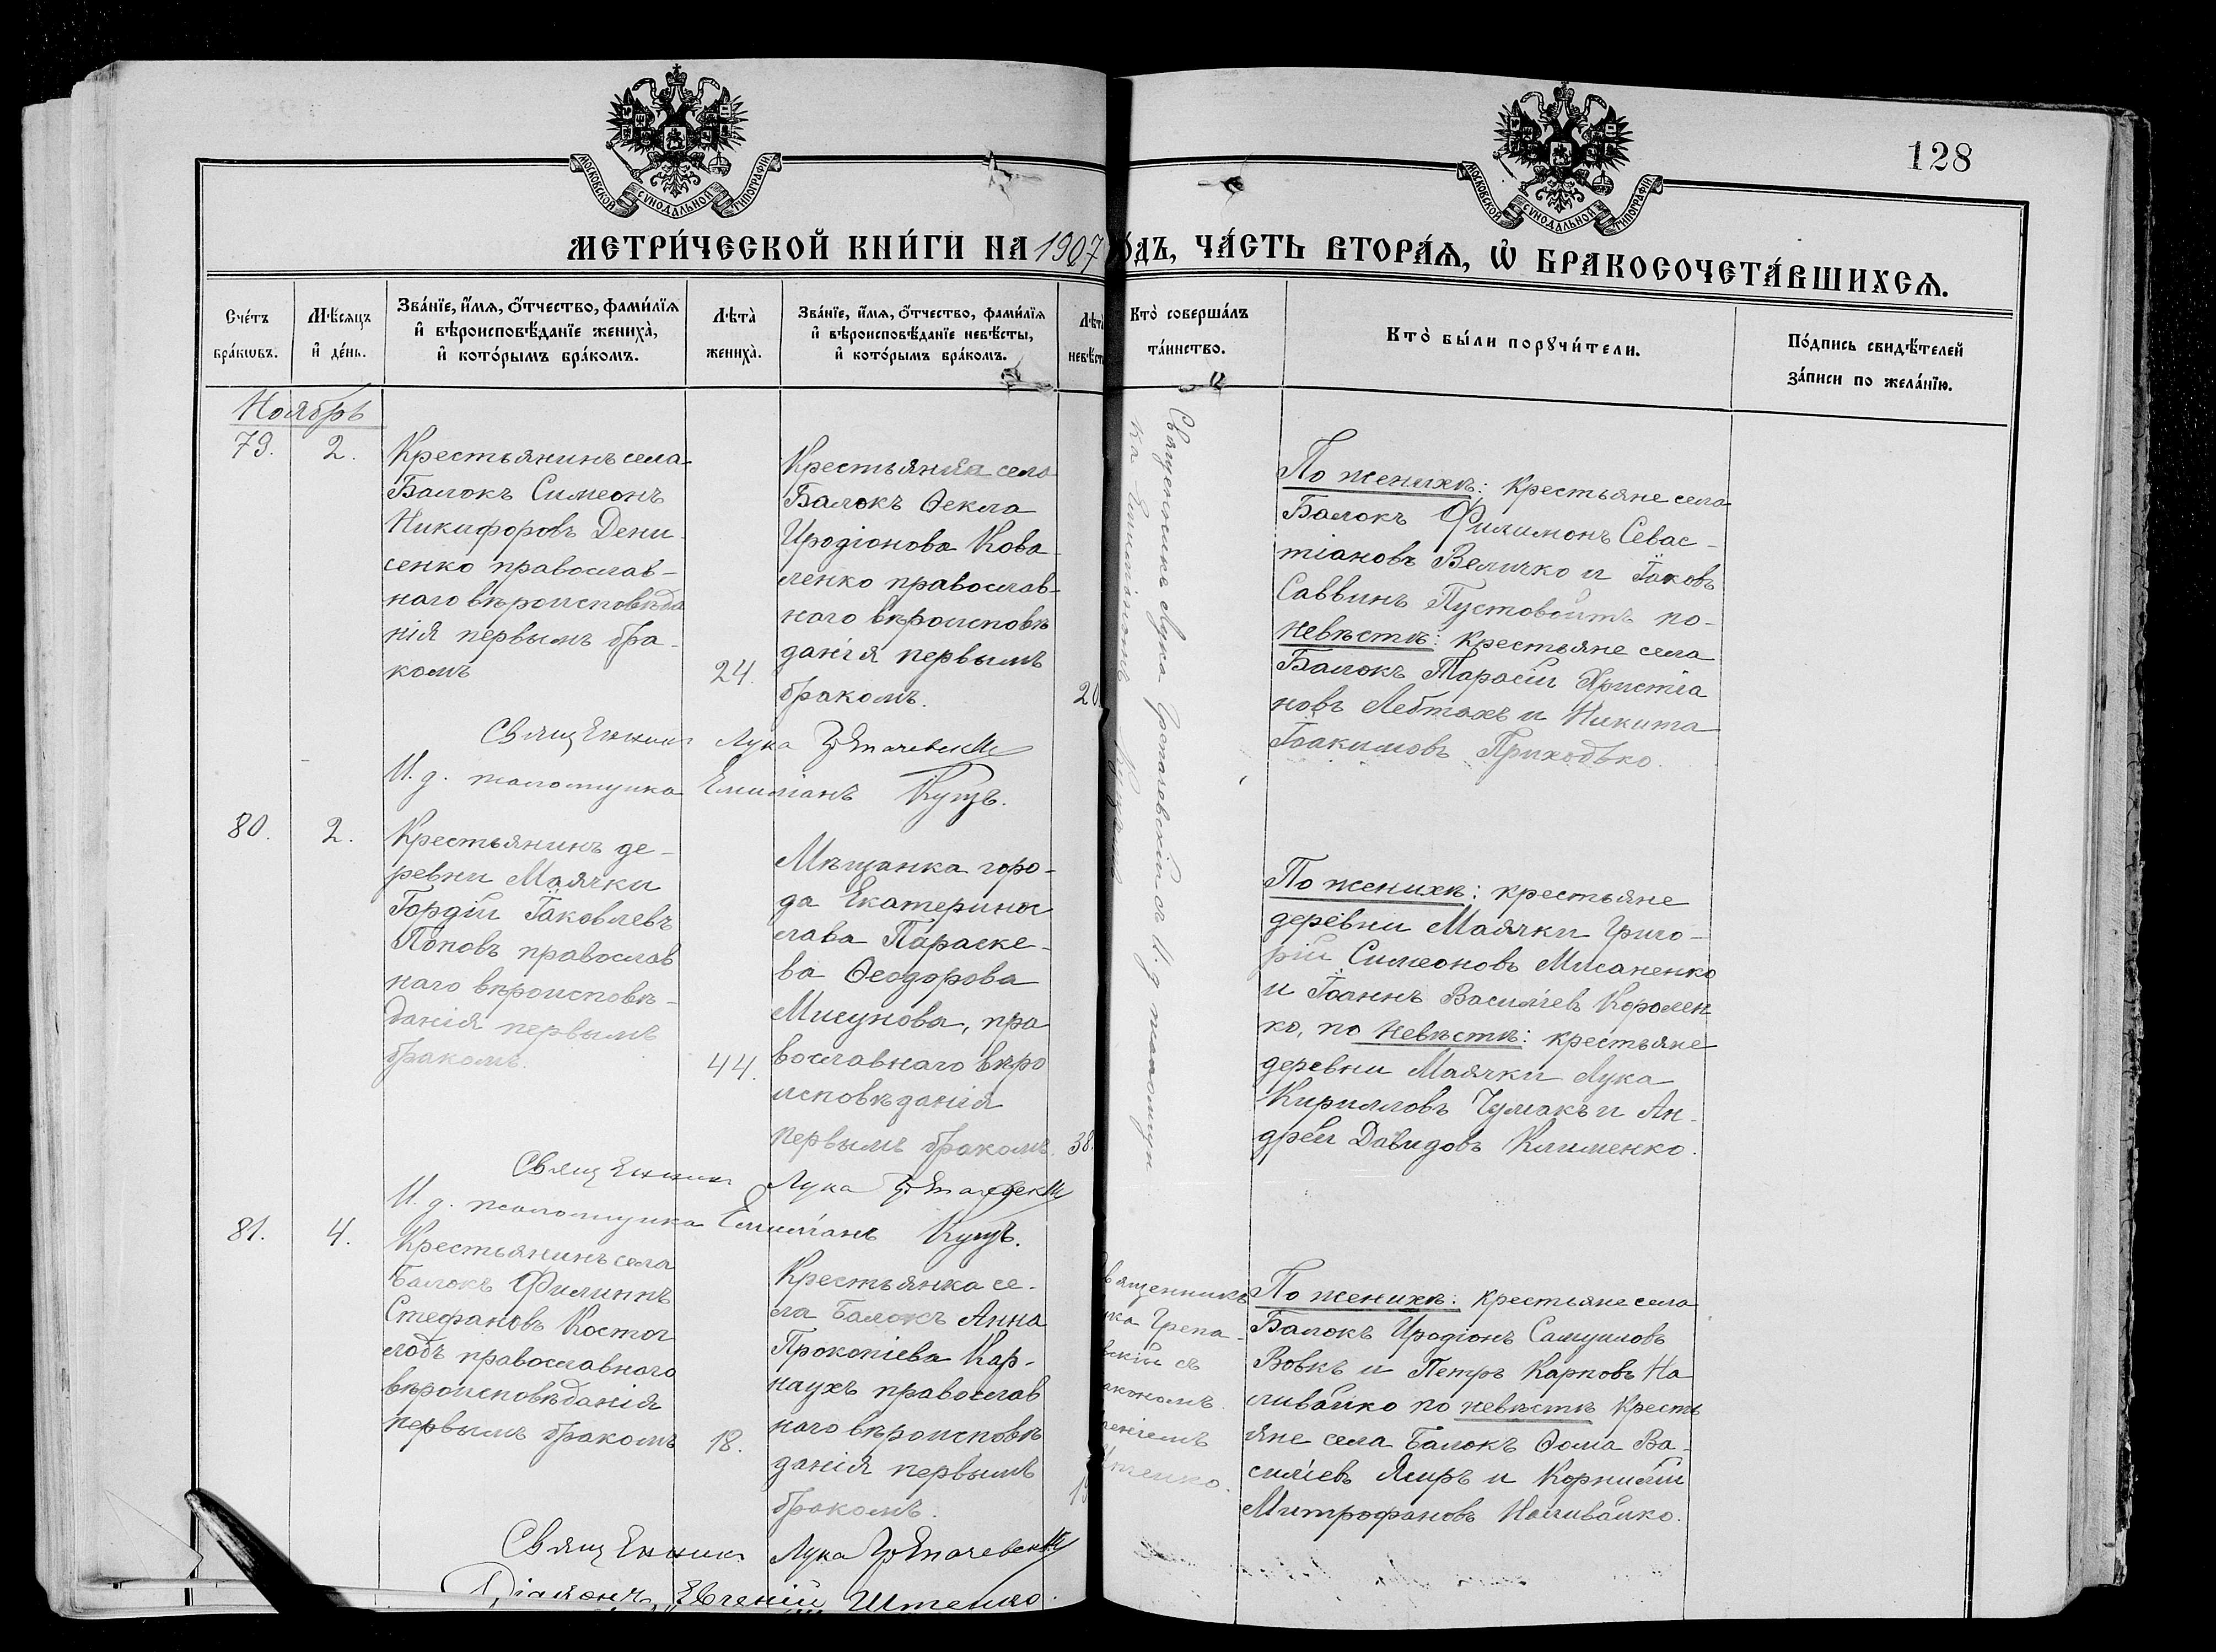 МОСКОВСКОЙ СѴНОДАЛЬНОЙ ТИПОГРАФІИ
МОСКОВСКОЙ СѴНОДАЛЬНОЙ ТИПОГРАФІИ
128
МЕТРИ́ЧЕСКОЙ КНИ́ГИ НА 1907 О́ДЪ, ЧА́СТЬ ВТОРА́Ѧ, Ѡ҆ БРАКОСОЧЕТА́ВШИХСѦ.
Сче́тъ
бра́кѡвъ.
Мѣ́сѧцъ
и҆ де́нь.
Зва́нїе, и҆́мѧ, ѻ҆́тчество, фами́лїѧ
и҆ вѣроисповѣ́данїе жениха̀,
и҆ кото́рымъ бра́комъ.
Лѣта̀
жениха̀.
Зва́нїе, и҆́мѧ, ѻ҆́тчество, фами́лїѧ
и҆ вѣроисповѣ́данїе невѣ́сты,
и҆ кото́рымъ бра́комъ.
Лѣта
невѣ́ст
Кто̀ соверша́лъ
та́инство.
Кто̀ бы́ли порꙋчи́тели.
По́дпись свидѣ́телей
за́писи по жела́нїю.
Ноябрь
79.
2.
Крестьянинъ села
Балокъ Симеонъ
Никифоровъ Дени-
сенко православ-
наго вѣроисповѣда
нія первымъ бра-
комъ
24.
Крестьянка села
Балокъ Ѳекла
Иродіонова Кова-
ленко православ-
наго вѣроисповѣ
данія первымъ
бракомъ.
20
Священникъ Лука Грепачевскій съ И. д. псаломщи
ка Емиліаномъ Куцомъ
По женихѣ: крестьяне села
Балокъ Филимонъ Севас-
тіановъ Величко и Іаковъ
Саввинъ Пустовойтъ по-
невѣстѣ: крестьяне села
Балокъ Тарасій Христіа
новъ Лебтахъ и Никита
Іоакимовъ Приходько.
Священникъ Лука Грепачевскій
И. д. псаломщика Емиліанъ Куцъ.
80.
2.
Крестьянинъ де-
ревни Маячки
Гордій Іаковлевъ
Поповъ православ
наго вѣроисповѣ-
данія первымъ
бракомъ.
44.
Мѣщанка горо-
да Екатеринос
лава Параске-
ва Ѳеодорова
Мисунова, пра
вославнаго вѣро
исповѣданія
первымъ бракомъ.
38.
По женихѣ: крестьяне
деревни Маячки Григо-
рій Симеоновъ Мисаненко
и Іоаннъ Васильевъ Королен
ко, по невѣстѣ: крестьяне
деревни Маячки Лука
Кирилловъ Чумакъ и Ан-
дрей Давидовъ Клименко.
Священникъ Лука Грепачевскій
И. д. псаломщика Емиліанъ Куцъ.
81.
4.
Крестьянинъ села
Балокъ Филиппъ
Стефановъ Костог
лодъ православнаго
вѣроисповѣданія
первымъ бракомъ
18.
Крестьянка се-
ла Балокъ Анна
Прокопіева Кар-
наухъ православ
наго вѣроисповѣ
данія первымъ
бракомъ.
священникъ
ука Грепа-
вскій съ
акономъ
геніемъ
Штепко.
По женихѣ: крестьяне села
Балокъ Иродіонъ Самуиловъ
Вовкъ и Петръ Карповъ На
ливайко по невѣстѣ кресть
яне села Балокъ Ѳома Ва-
сильевъ Яиръ и Корнилій
Митрофановъ Наливайко.
Священникъ Лука Грепачевскій
Діаконъ Евгеній Штепко.